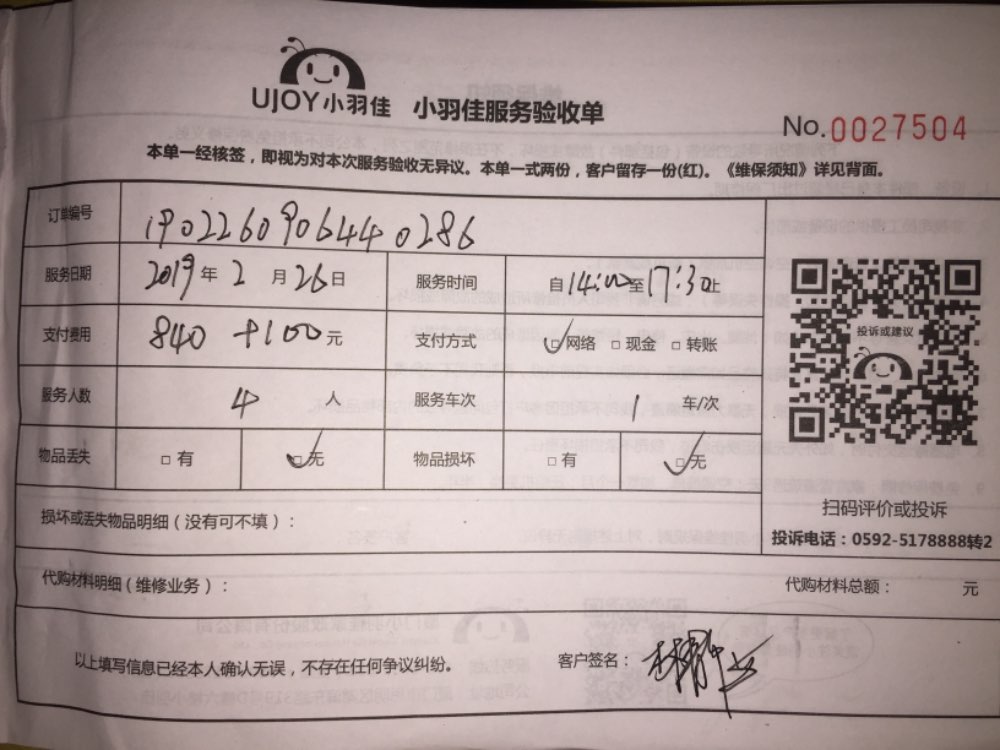 UJOY小羽佳 小羽佳服务验收单
No.0027504
本单一经核签，即视为对本次服务验收无异议。本单一式两份，客户留存一份(红)。《维保须知》详见背面。
订单编号 190226090644 0286
服务日期 2019年2月26日 服务时间 自14:00至17:30止
支付费用 840 +100元 支付方式 ☑网络 □现金 □转账
服务人数 4人 服务车次 1车/次
物品丢失 □有 ☑无 物品损坏 □有 ☑无
投诉或建议
扫码评价或投诉
投诉电话：0592-5178888转2
损坏或丢失物品明细（没有可不填）：
代购材料明细（维修业务）： 代购材料总额： 元
以上填写信息已经本人确认无误，不存在任何争议纠纷。 客户签名：